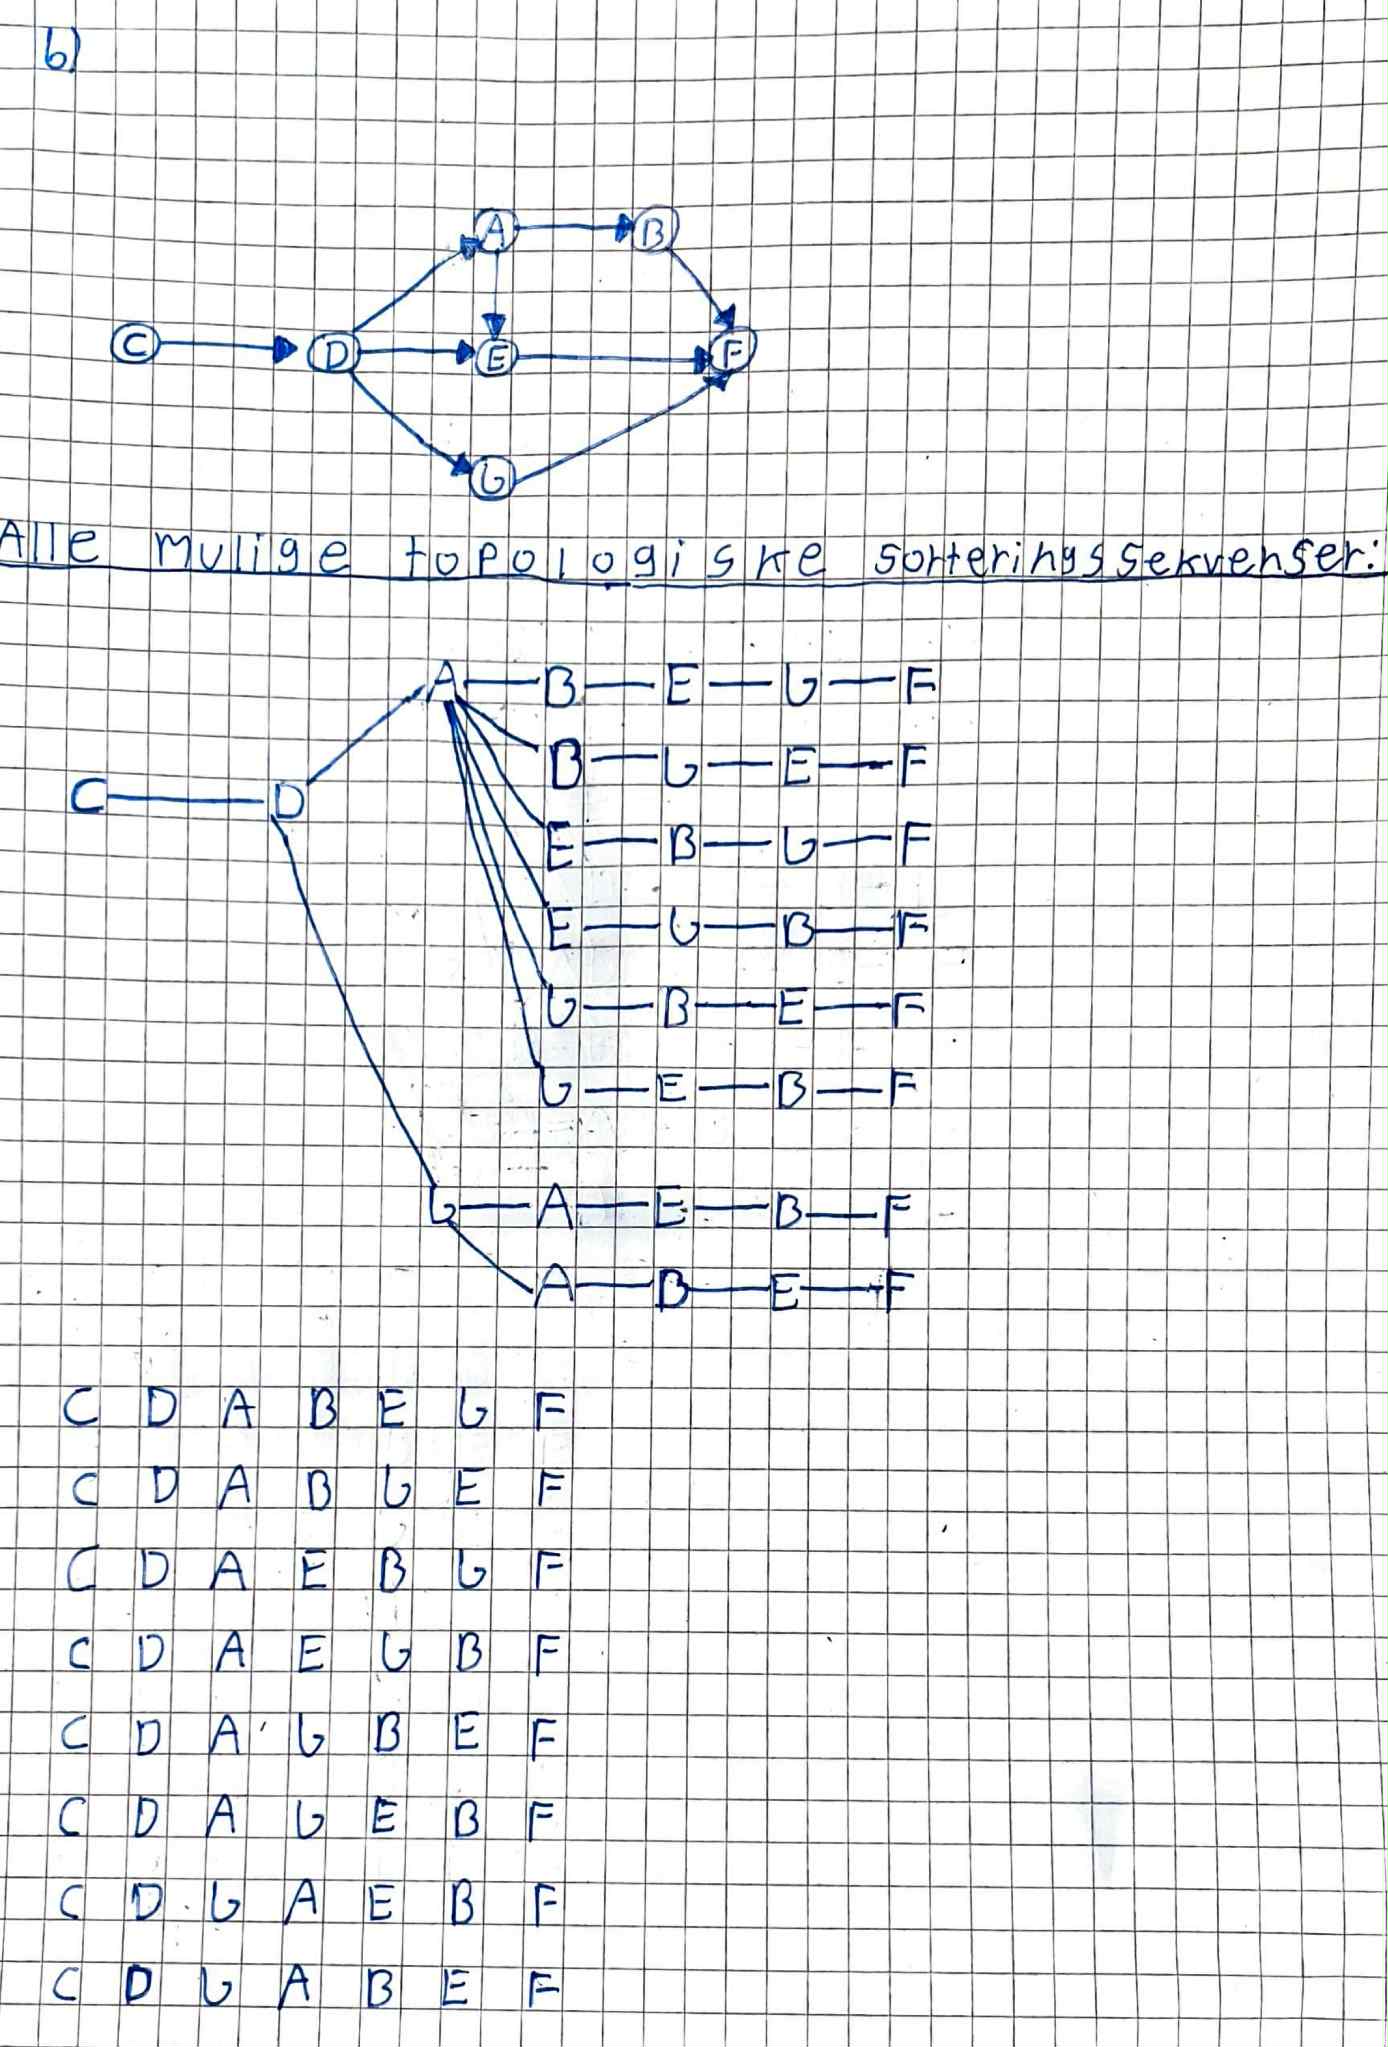 b)
A B
C D E F
G
Alle mulige topologiske sorteringssekvenser:
A — B — E — G — F
B — G — E — F
C — D
E — B — G — F
E — G — B — F
G — B — E — F
G — E — B — F
G — A — E — B — F
A — B — E — F
C D A B E G F
C D A B G E F
C D A E B G F
C D A E G B F
C D A G B E F
C D A G E B F
C D G A E B F
C D G A B E F